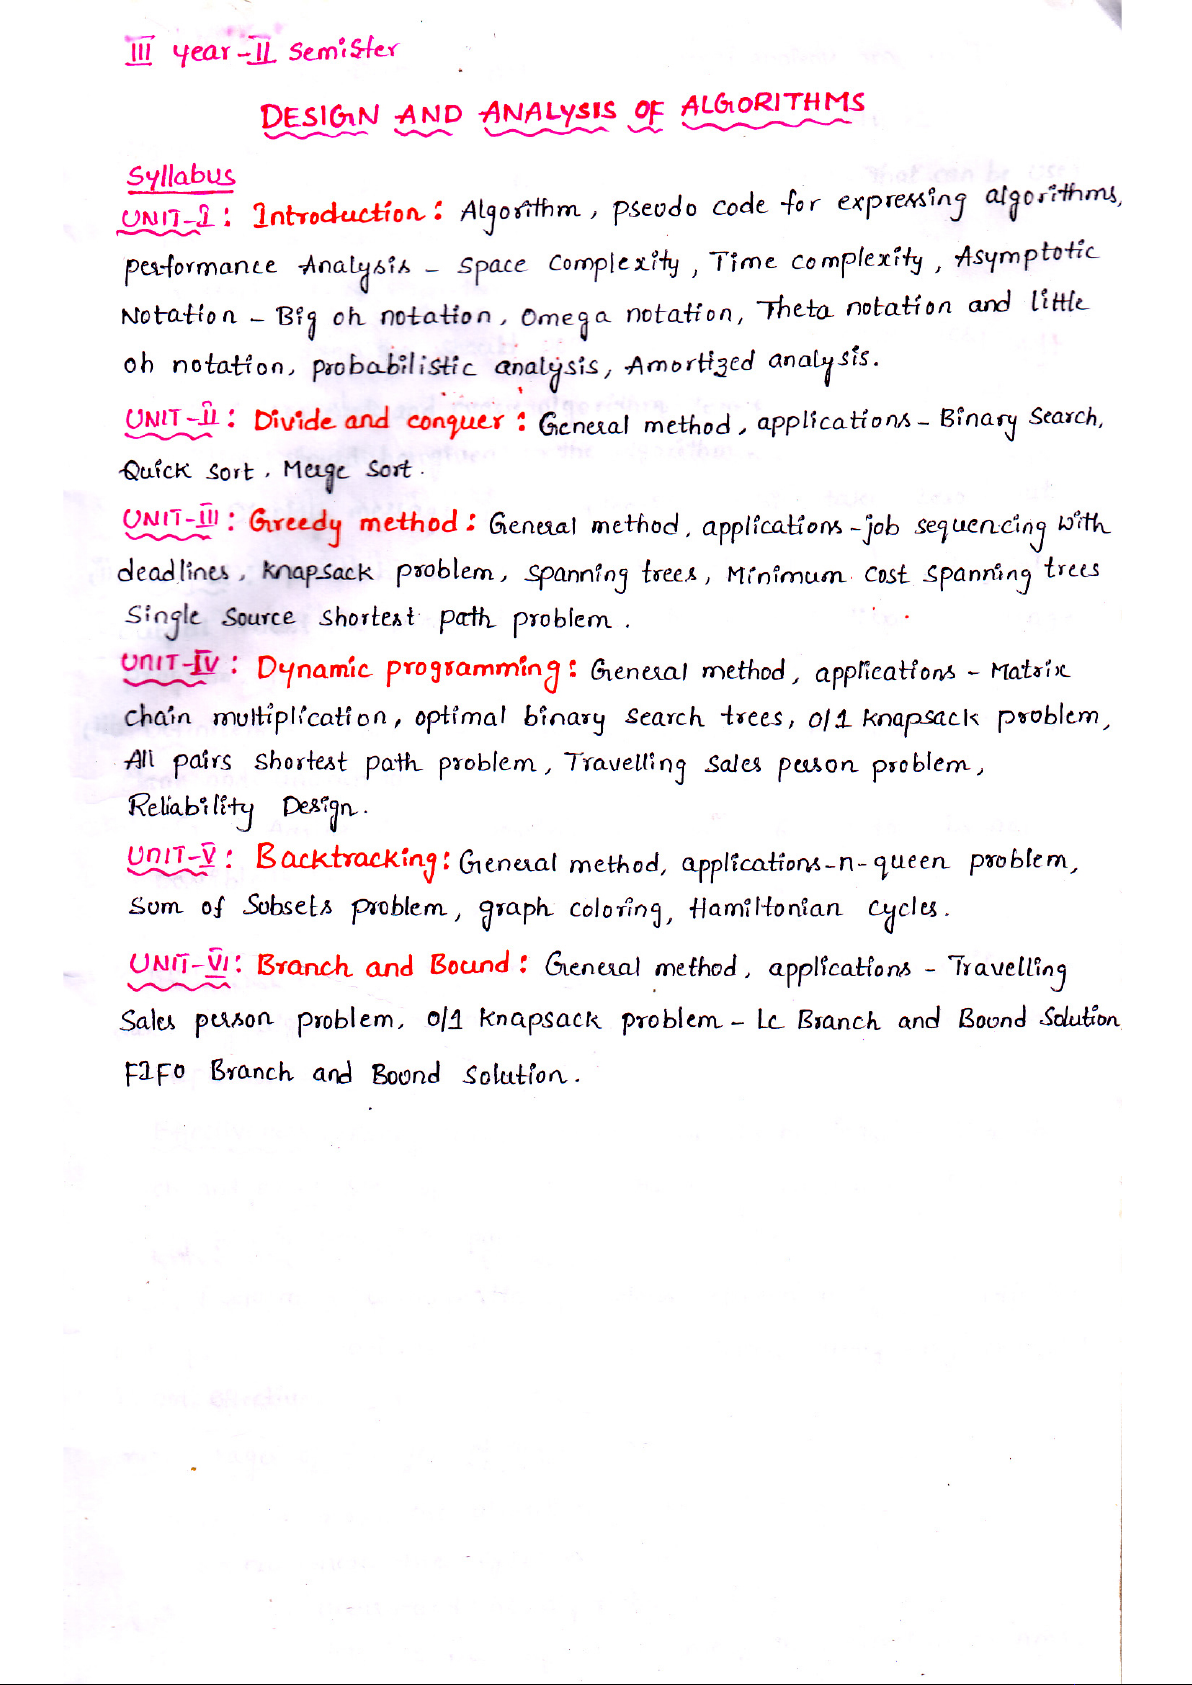 III year-II Semister
DESIGN AND ANALYSIS OF ALGORITHMS
Syllabus
UNIT-I: Introduction: Algorithm, pseudo code for expressing algorithms,
performance Analysis - Space Complexity, Time complexity, Asymptotic
Notation - Big oh notation, Omega notation, Theta notation and little
oh notation, probabilistic analysis, Amortized analysis.
UNIT-II: Divide and conquer: General method, applications - Binary Search,
Quick sort, Merge sort.
UNIT-III: Greedy method: General method, applications - job sequencing with
deadlines, knapsack problem, spanning trees, Minimum cost spanning trees
Single Source shortest path problem.
UNIT-IV: Dynamic programming: General method, applications - Matrix
chain multiplication, optimal binary search trees, 0/1 knapsack problem,
All pairs shortest path problem, Travelling sales person problem,
Reliability Design.
UNIT-V: Backtracking: General method, applications-n-queen problem,
Sum of Subsets problem, graph coloring, Hamiltonian cycles.
UNIT-VI: Branch and Bound: General method, applications - Travelling
Sales person problem, 0/1 knapsack problem - LC Branch and Bound Solution
FIFO Branch and Bound solution.